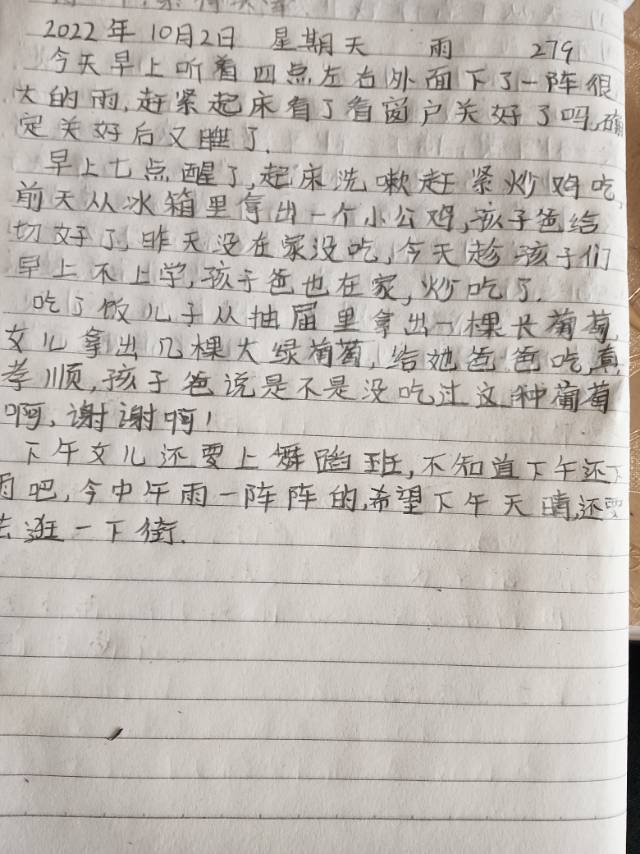 2022年10月2日 星期天 雨 279
今天早上听着四点左右外面下了一阵很
大的雨,赶紧起床看了看窗户关好了吗,确
定关好后又睡了.
早上七点醒了,起床洗嗽赶紧炒鸡吃,
前天从冰箱里拿出一个小公鸡,孩子爸给
切好了,昨天没在家没吃,今天趁孩子们
早上不上学,孩子爸也在家,炒吃了.
吃了饭儿子从抽屉里拿出一棵长葡萄,
女儿拿出几棵大绿葡萄,给她爸爸吃,真
孝顺,孩子爸说是不是没吃过这种葡萄
啊,谢谢啊!
下午女儿还要上舞蹈班,不知道下午还下
雨吧,今中午雨一阵阵的,希望下午天晴,还要
去逛一下街.